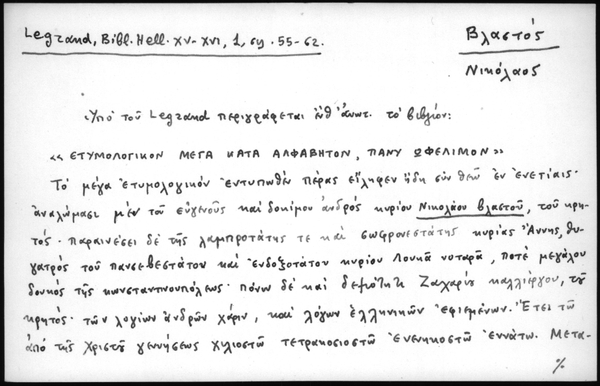 Legrand, Bibl. Hell. XV-XVI, 1, σσ. 55-62.
Βλαστός
Νικόλαος
Ὑπό τοῦ Legrand περιγράφεται ἐνθ' ἀνωτ. τό βιβλίον:
«ΕΤΥΜΟΛΟΓΙΚΟΝ ΜΕΓΑ ΚΑΤΑ ΑΛΦΑΒΗΤΟΝ, ΠΑΝΥ ΩΦΕΛΙΜΟΝ»
Τό μέγα ἐτυμολογικόν ἐντυπωθέν πέρας εἴληφεν ἤδη σύν θεῷ ἐν ἐνετίαις·
ἀναλώμασι μέν τοῦ εὐγενοῦς καί δοκίμου ἀνδρός κυρίου Νικολάου βλαστοῦ, τοῦ κρη-
τός· παραινέσει δέ τῆς λαμπροτάτης τε καί σωφρονεστάτης κυρίας Ἄννης, θυ-
γατρός τοῦ πανσεβεστάτου καί ἐνδοξοτάτου κυρίου Λουκᾶ νοταρᾶ, ποτέ μεγάλου
δουκός τῆς κωνσταντινουπόλεως· πόνῳ δέ καί δεξιότητι Ζαχαρίου καλλιέργου, τοῦ
κρητός· τῶν λογίων ἀνδρῶν χάριν, καί λόγων ἑλληνικῶν ἐφιεμένων. Ἔτει τῷ
ἀπό τῆς Χριστοῦ γεννήσεως χιλιοστῷ τετρακοσιοστῷ ἐνενηκοστῷ ἐννάτῳ. Μετα-
%